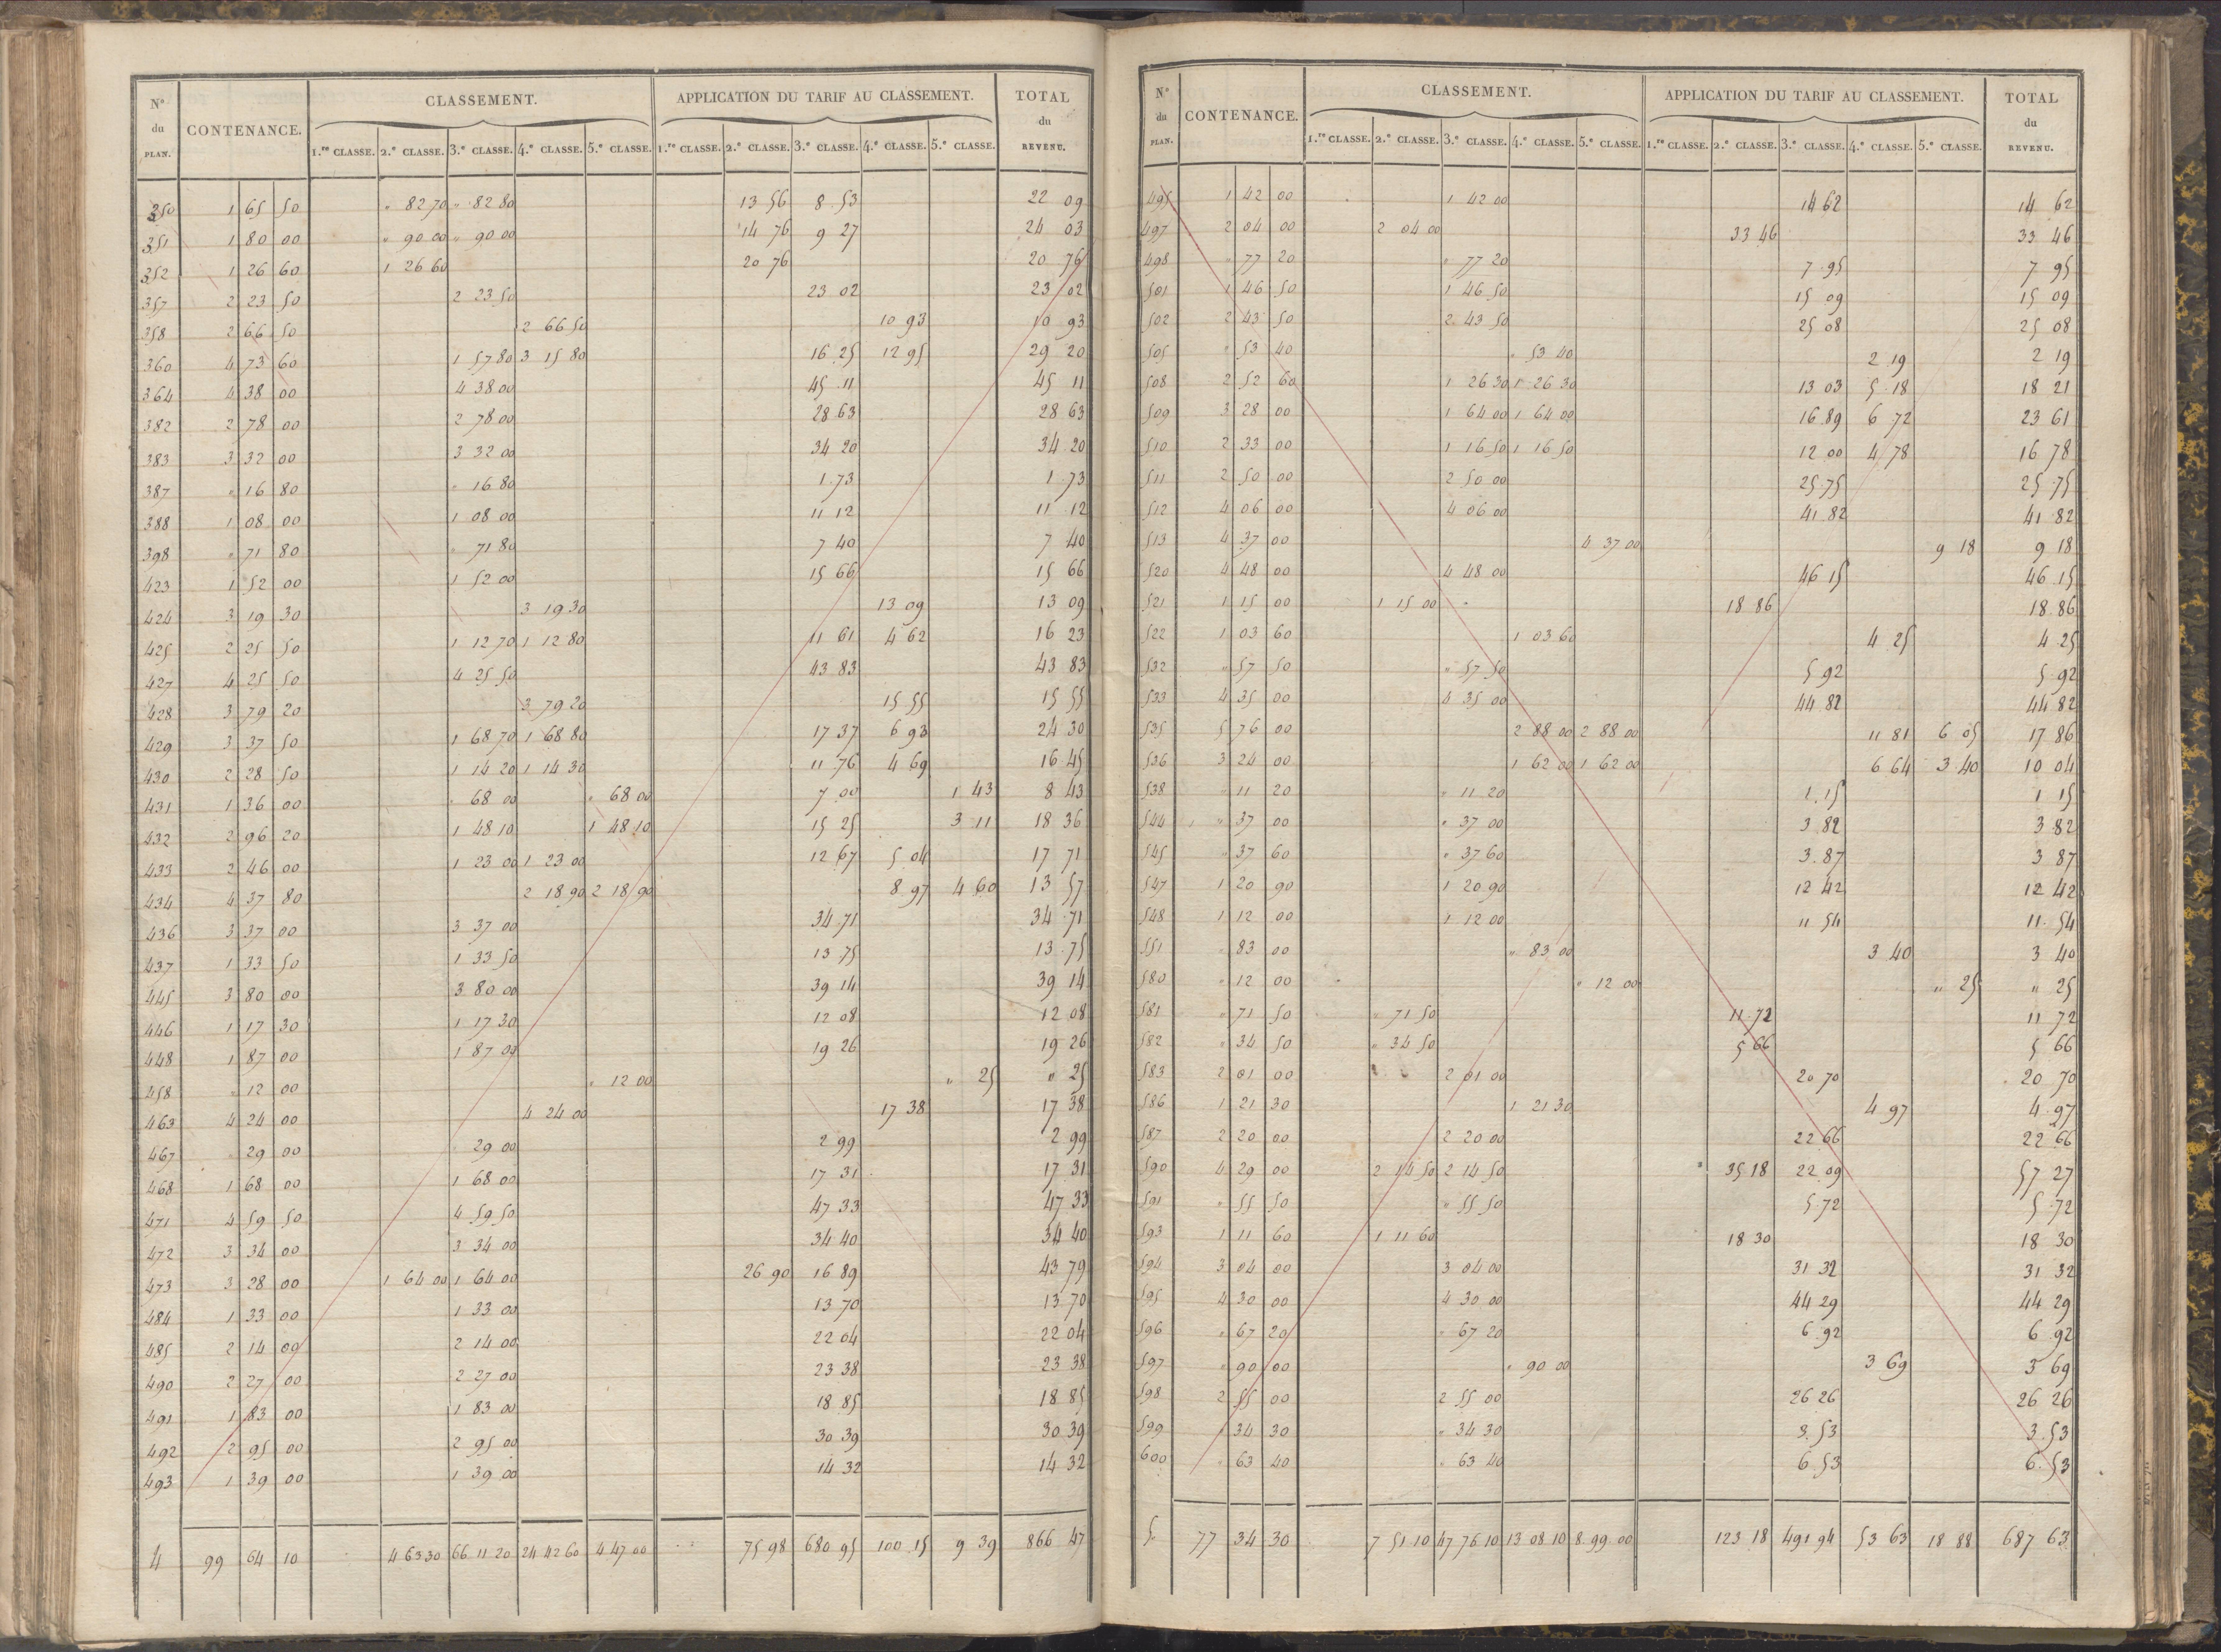 N° du PLAN. CONTENANCE. CLASSEMENT. APPLICATION DU TARIF AU CLASSEMENT. TOTAL du REVENU.
1.re CLASSE. 2.e CLASSE. 3.e CLASSE. 4.e CLASSE. 5.e CLASSE. 1.re CLASSE. 2.e CLASSE. 3.e CLASSE. 4.e CLASSE. 5.e CLASSE.
350 1 65 50 " 82 70 " 82 80 13 56 8 53 22 09
351 1 80 00 " 90 00 " 90 00 14 76 9 27 24 03
352 1 26 60 1 26 60 20 76 20 76
357 2 23 50 2 23 50 23 02 23 02
358 2 66 50 2 66 50 10 93 10 93
360 4 73 60 1 57 80 3 15 80 16 25 12 95 29 20
364 4 38 00 4 38 00 45 11 45 11
382 2 78 00 2 78 00 28 63 28 63
383 3 32 00 3 32 00 34 20 34 20
387 " 16 80 " 16 80 1 73 1 73
388 1 08 00 1 08 00 11 12 11 12
398 " 71 80 " 71 80 7 40 7 40
423 1 52 00 1 52 00 15 66 15 66
424 3 19 30 3 19 30 13 09 13 09
425 2 25 50 1 12 70 1 12 80 11 61 4 62 16 23
427 4 25 50 4 25 50 43 83 43 83
428 3 79 20 3 79 20 15 55 15 55
429 3 37 50 1 68 70 1 68 80 17 37 6 93 24 30
430 2 28 50 1 14 20 1 14 30 11 76 4 69 16 45
431 1 36 00 " 68 00 " 68 00 7 00 1 43 8 43
432 2 96 20 1 48 10 1 48 10 15 25 3 11 18 36
433 2 46 00 1 23 00 1 23 00 12 67 5 04 17 71
434 4 37 80 2 18 90 2 18 90 8 97 4 60 13 57
436 3 37 00 3 37 00 34 71 34 71
437 1 33 50 1 33 50 13 75 13 75
445 3 80 00 3 80 00 39 14 39 14
446 1 17 30 1 17 30 12 08 12 08
448 1 87 00 1 87 00 19 26 19 26
458 " 12 00 " 12 00 " 25 " 25
463 4 24 00 4 24 00 17 38 17 38
467 " 29 00 " 29 00 2 99 2 99
468 1 68 00 1 68 00 17 31 17 31
471 4 59 50 4 59 50 47 33 47 33
472 3 34 00 3 34 00 34 40 34 40
473 3 28 00 1 64 00 1 64 00 26 90 16 89 43 79
484 1 33 00 1 33 00 13 70 13 70
485 2 14 00 2 14 00 22 04 22 04
490 2 27 00 2 27 00 23 38 23 38
491 1 83 00 1 83 00 18 85 18 85
492 2 95 00 2 95 00 30 39 30 39
493 1 39 00 1 39 00 14 32 14 32
4 99 64 10 4 63 30 66 11 20 24 42 60 4 47 00 75 98 680 95 100 15 9 39 866 47
N° du PLAN. CONTENANCE. CLASSEMENT. APPLICATION DU TARIF AU CLASSEMENT. TOTAL du REVENU.
1.re CLASSE. 2.e CLASSE. 3.e CLASSE. 4.e CLASSE. 5.e CLASSE. 1.re CLASSE. 2.e CLASSE. 3.e CLASSE. 4.e CLASSE. 5.e CLASSE.
495 1 42 00 1 42 00 14 62 14 62
497 2 04 00 2 04 00 33 46 33 46
498 " 77 20 " 77 20 7 95 7 95
501 1 46 50 1 46 50 15 09 15 09
502 2 43 50 2 43 50 25 08 25 08
505 " 53 40 " 53 40 2 19 2 19
508 2 52 60 1 26 30 1 26 30 13 03 5 18 18 21
509 3 28 00 1 64 00 1 64 00 16 89 6 72 23 61
510 2 33 00 1 16 50 1 16 50 12 00 4 78 16 78
511 2 50 00 2 50 00 25 75 25 75
512 4 06 00 4 06 00 41 82 41 82
513 4 37 00 4 37 00 9 18 9 18
520 4 48 00 4 48 00 46 15 46 15
521 1 15 00 1 15 00 18 86 18 86
522 1 03 60 1 03 60 4 25 4 25
532 " 57 50 " 57 50 5 92 5 92
533 4 35 00 4 35 00 44 82 44 82
535 5 76 00 2 88 00 2 88 00 11 81 6 05 17 86
536 3 24 00 1 62 00 1 62 00 6 64 3 40 10 04
538 " 11 20 " 11 20 1 15 1 15
544 " 37 00 " 37 00 3 82 3 82
545 " 37 60 " 37 60 3 87 3 87
547 1 20 90 1 20 90 12 42 12 42
548 1 12 00 1 12 00 11 54 11 54
551 " 83 00 " 83 00 3 40 3 40
580 " 12 00 " 12 00 " 25 " 25
581 " 71 50 " 71 50 11 72 11 72
582 " 34 50 " 34 50 5 66 5 66
583 2 01 00 2 01 00 20 70 20 70
586 1 21 30 1 21 30 4 97 4 97
587 2 20 00 2 20 00 22 66 22 66
590 4 29 00 2 14 50 2 14 50 35 18 22 09 57 27
591 " 55 50 " 55 50 5 72 5 72
593 1 11 60 1 11 60 18 30 18 30
594 3 04 00 3 04 00 31 32 31 32
595 4 30 00 4 30 00 44 29 44 29
596 " 67 20 " 67 20 6 92 6 92
597 " 90 00 " 90 00 3 69 3 69
598 2 55 00 2 55 00 26 26 26 26
599 " 34 30 " 34 30 3 53 3 53
600 " 63 40 " 63 40 6 53 6 53
5 77 34 30 7 51 10 47 76 10 13 08 10 8 99 00 123 18 491 94 53 63 18 88 687 63